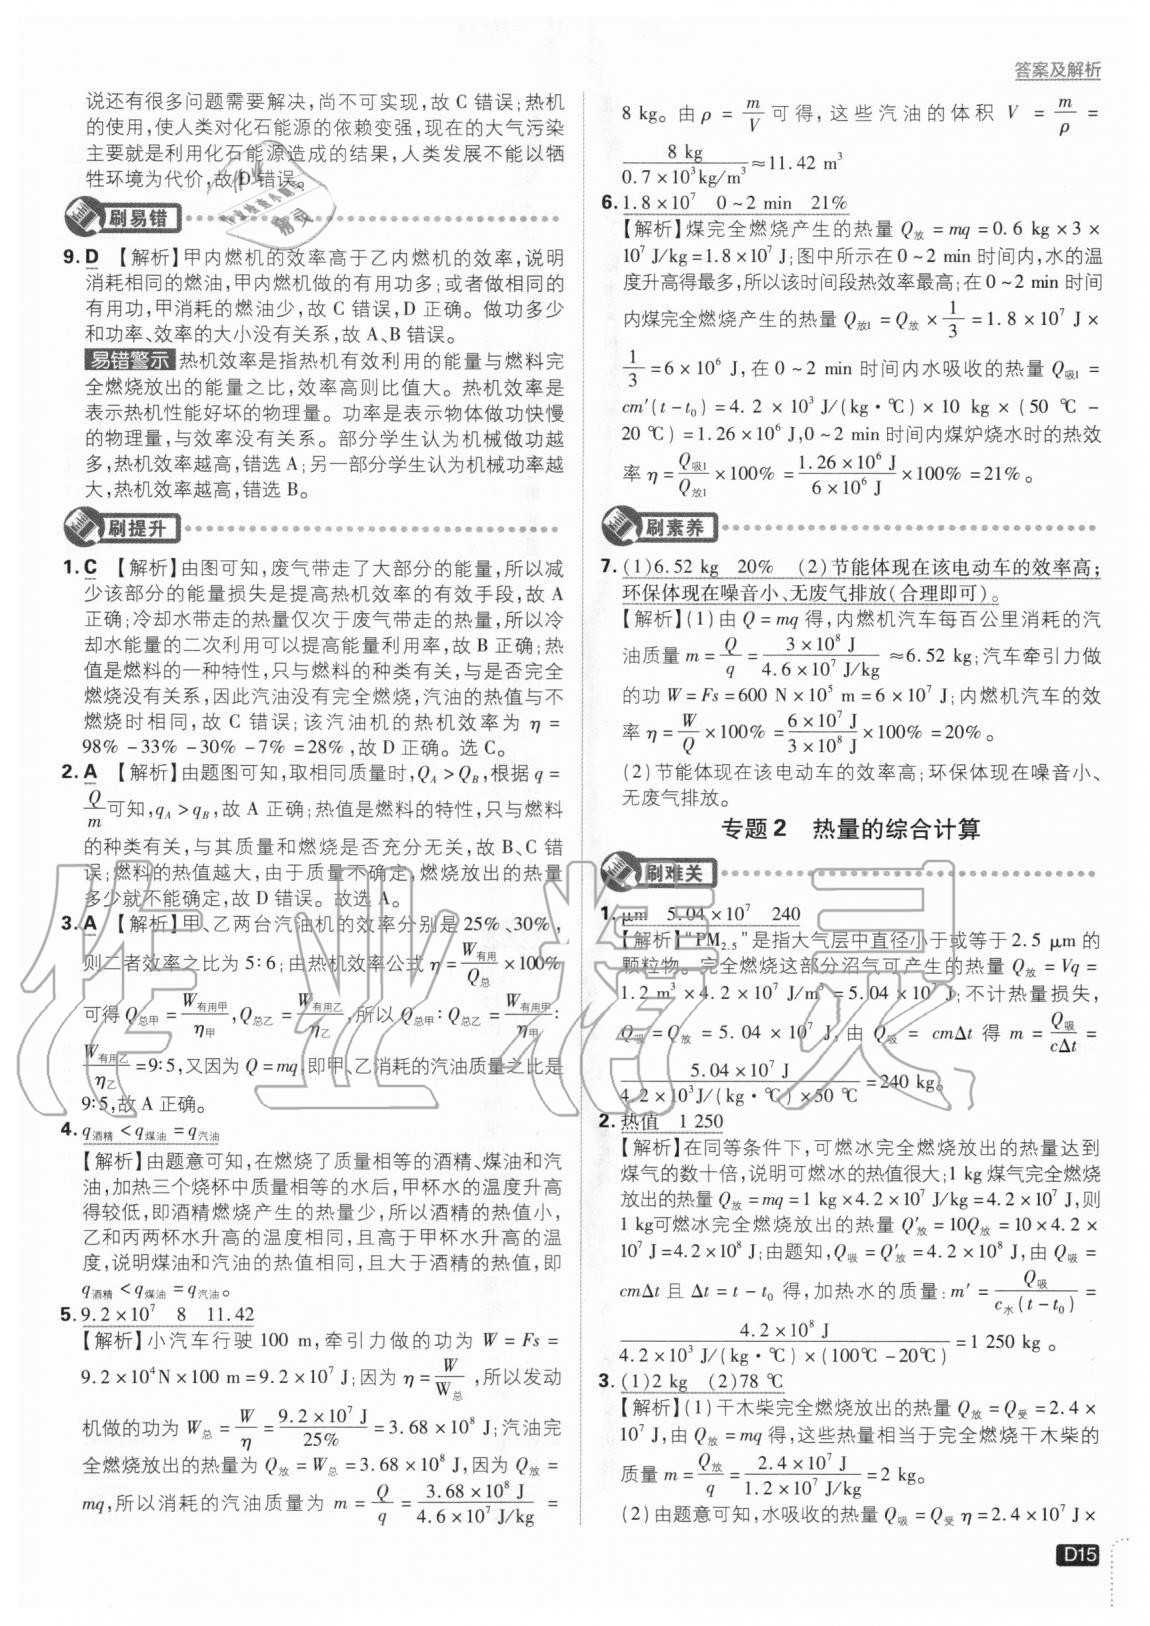 答案及解析
说还有很多问题需要解决,尚不可实现,故 C 错误;热机
的使用,使人类对化石能源的依赖变强,现在的大气污染
主要就是利用化石能源造成的结果,人类发展不能以牺
牲环境为代价,故 D 错误。
刷易错
9. D 【解析】甲内燃机的效率高于乙内燃机的效率,说明
消耗相同的燃油,甲内燃机做的有用功多;或者做相同的
有用功,甲消耗的燃油少,故 C 错误,D 正确。做功多少
和功率、效率的大小没有关系,故 A、B 错误。
易错警示 热机效率是指热机有效利用的能量与燃料完
全燃烧放出的能量之比,效率高则比值大。热机效率是
表示热机性能好坏的物理量。功率是表示物体做功快慢
的物理量,与效率没有关系。部分学生认为机械做功越
多,热机效率越高,错选 A;另一部分学生认为机械功率越
大,热机效率越高,错选 B。
刷提升
1. C 【解析】由图可知,废气带走了大部分的能量,所以减
少该部分的能量损失是提高热机效率的有效手段,故 A
正确;冷却水带走的热量仅次于废气带走的热量,所以冷
却水能量的二次利用可以提高能量利用率,故 B 正确;热
值是燃料的一种特性,只与燃料的种类有关,与是否完全
燃烧没有关系,因此汽油没有完全燃烧,汽油的热值与不
燃烧时相同,故 C 错误;该汽油机的热机效率为 η =
98% - 33% - 30% - 7% = 28%,故 D 正确。选 C。
2. A 【解析】由题图可知,取相同质量时,Q_A > Q_B,根据 q =
Q/m 可知,q_A > q_B,故 A 正确;热值是燃料的特性,只与燃料
的种类有关,与其质量和燃烧是否充分无关,故 B、C 错
误;燃料的热值越大,由于质量不确定,燃烧放出的热量
多少就不能确定,故 D 错误。故选 A。
3. A 【解析】甲、乙两台汽油机的效率分别是 25%、30%,
则二者效率之比为 5:6;由热机效率公式 η = W有用/Q总 × 100%
可得 Q总甲 = W有用甲/η甲, Q总乙 = W有用乙/η乙, 所以 Q总甲:Q总乙 = W有用甲/η甲 :
W有用乙/η乙 = 9:5,又因为 Q = mq,即甲、乙消耗的汽油质量之比是
9:5,故 A 正确。
4. q酒精 < q煤油 = q汽油
【解析】由题意可知,在燃烧了质量相等的酒精、煤油和汽
油,加热三个烧杯中质量相等的水后,甲杯水的温度升高
得较低,即酒精燃烧产生的热量少,所以酒精的热值小,
乙和丙两杯水升高的温度相同,且高于甲杯水升高的温
度,说明煤油和汽油的热值相同,且大于酒精的热值,即
q酒精 < q煤油 = q汽油。
5. 9.2×10⁷ 8 11.42
【解析】小汽车行驶 100 m,牵引力做的功为 W = Fs =
9.2×10⁴N × 100 m = 9.2×10⁷ J;因为 η = W/W总,所以发动
机做的功为 W总 = W/η = 9.2×10⁷ J/25% = 3.68×10⁸ J;汽油完
全燃烧放出的热量为 Q放 = W总 = 3.68×10⁸ J,因为 Q放 =
mq,所以消耗的汽油质量为 m = Q/q = 3.68×10⁸ J/4.6×10⁷ J/kg =
8 kg。由 ρ = m/V 可得,这些汽油的体积 V = m/ρ =
8 kg/0.7×10³kg/m³ ≈ 11.42 m³
6. 1.8×10⁷ 0~2 min 21%
【解析】煤完全燃烧产生的热量 Q放 = mq = 0.6 kg×3×
10⁷ J/kg = 1.8×10⁷ J;图中所示在 0~2 min 时间内,水的温
度升高得最多,所以该时间段热效率最高;在 0~2 min 时间
内煤完全燃烧产生的热量 Q放1 = Q放 × 1/3 = 1.8×10⁷ J×
1/3 = 6×10⁶ J,在 0~2 min 时间内水吸收的热量 Q吸1 =
cm′(t - t₀) = 4.2×10³ J/(kg·℃) × 10 kg × (50 ℃ -
20 ℃) = 1.26×10⁶ J,0~2 min 时间内煤炉烧水时的热效
率 η = Q吸1/Q放1 × 100% = 1.26×10⁶ J/6×10⁶ J × 100% = 21%。
刷素养
7. (1)6.52 kg 20% (2)节能体现在该电动车的效率高;
环保体现在噪音小、无废气排放(合理即可)。
【解析】(1)由 Q = mq 得,内燃机汽车每百公里消耗的汽
油质量 m = Q/q = 3×10⁸ J/4.6×10⁷ J/kg ≈ 6.52 kg;汽车牵引力做
的功 W = Fs = 600 N×10⁵ m = 6×10⁷ J;内燃机汽车的效
率 η = W/Q × 100% = 6×10⁷ J/3×10⁸ J × 100% = 20%。
(2)节能体现在该电动车的效率高;环保体现在噪音小、
无废气排放。
专题2 热量的综合计算
刷难关
1. μm 5.04×10⁷ 240
【解析】"PM₂.₅"是指大气层中直径小于或等于 2.5 μm 的
颗粒物。完全燃烧这部分沼气可产生的热量 Q放 = Vq =
1.2 m³×4.2×10⁷ J/m³ = 5.04×10⁷ J;不计热量损失,
Q吸 = Q放 = 5.04×10⁷ J,由 Q吸 = cmΔt 得 m = Q吸/cΔt =
5.04×10⁷ J/4.2×10³J/(kg·℃)×50 ℃ = 240 kg。
2. 热值 1 250
【解析】在同等条件下,可燃冰完全燃烧放出的热量达到
煤气的数十倍,说明可燃冰的热值很大;1 kg 煤气完全燃烧
放出的热量 Q放 = mq = 1 kg×4.2×10⁷ J/kg = 4.2×10⁷ J,则
1 kg可燃冰完全燃烧放出的热量 Q′放 = 10Q放 = 10×4.2×
10⁷ J = 4.2×10⁸ J;由题知,Q吸 = Q′放 = 4.2×10⁸ J,由 Q吸 =
cmΔt 且 Δt = t - t₀ 得,加热水的质量:m′ = Q吸/c水(t - t₀) =
4.2×10⁸ J/4.2×10³ J/(kg·℃)×(100℃-20℃) = 1 250 kg。
3. (1)2 kg (2)78 ℃
【解析】(1)干木柴完全燃烧放出的热量 Q放 = Q受 = 2.4×
10⁷ J,由 Q放 = mq 得,这些热量相当于完全燃烧干木柴的
质量 m = Q放/q = 2.4×10⁷ J/1.2×10⁷ J/kg = 2 kg。
(2)由题意可知,水吸收的热量 Q吸 = Q受 η = 2.4×10⁷ J×
D15
作业精灵